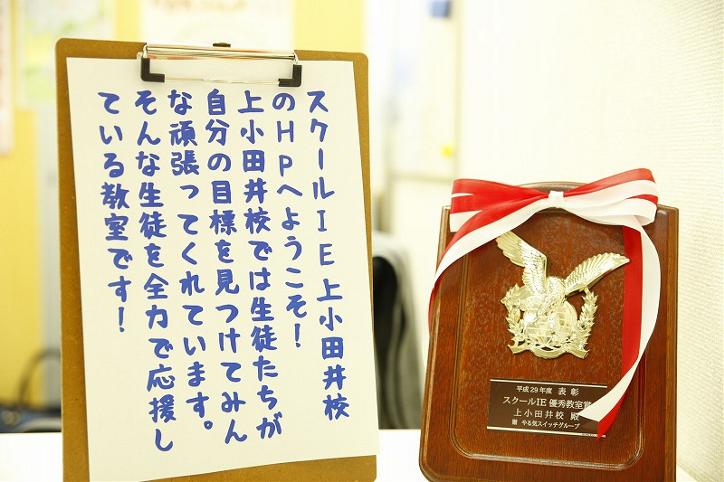 スクールIE上小田井校
のHPへようこそ!
上小田井校では生徒たちが
自分の目標を見つけてみん
な頑張ってくれています。
そんな生徒を全力で応援し
ている教室です!
平成29年度 表彰
スクールIE 優秀教室賞
上小田井校 殿
贈 やる気スイッチグループ